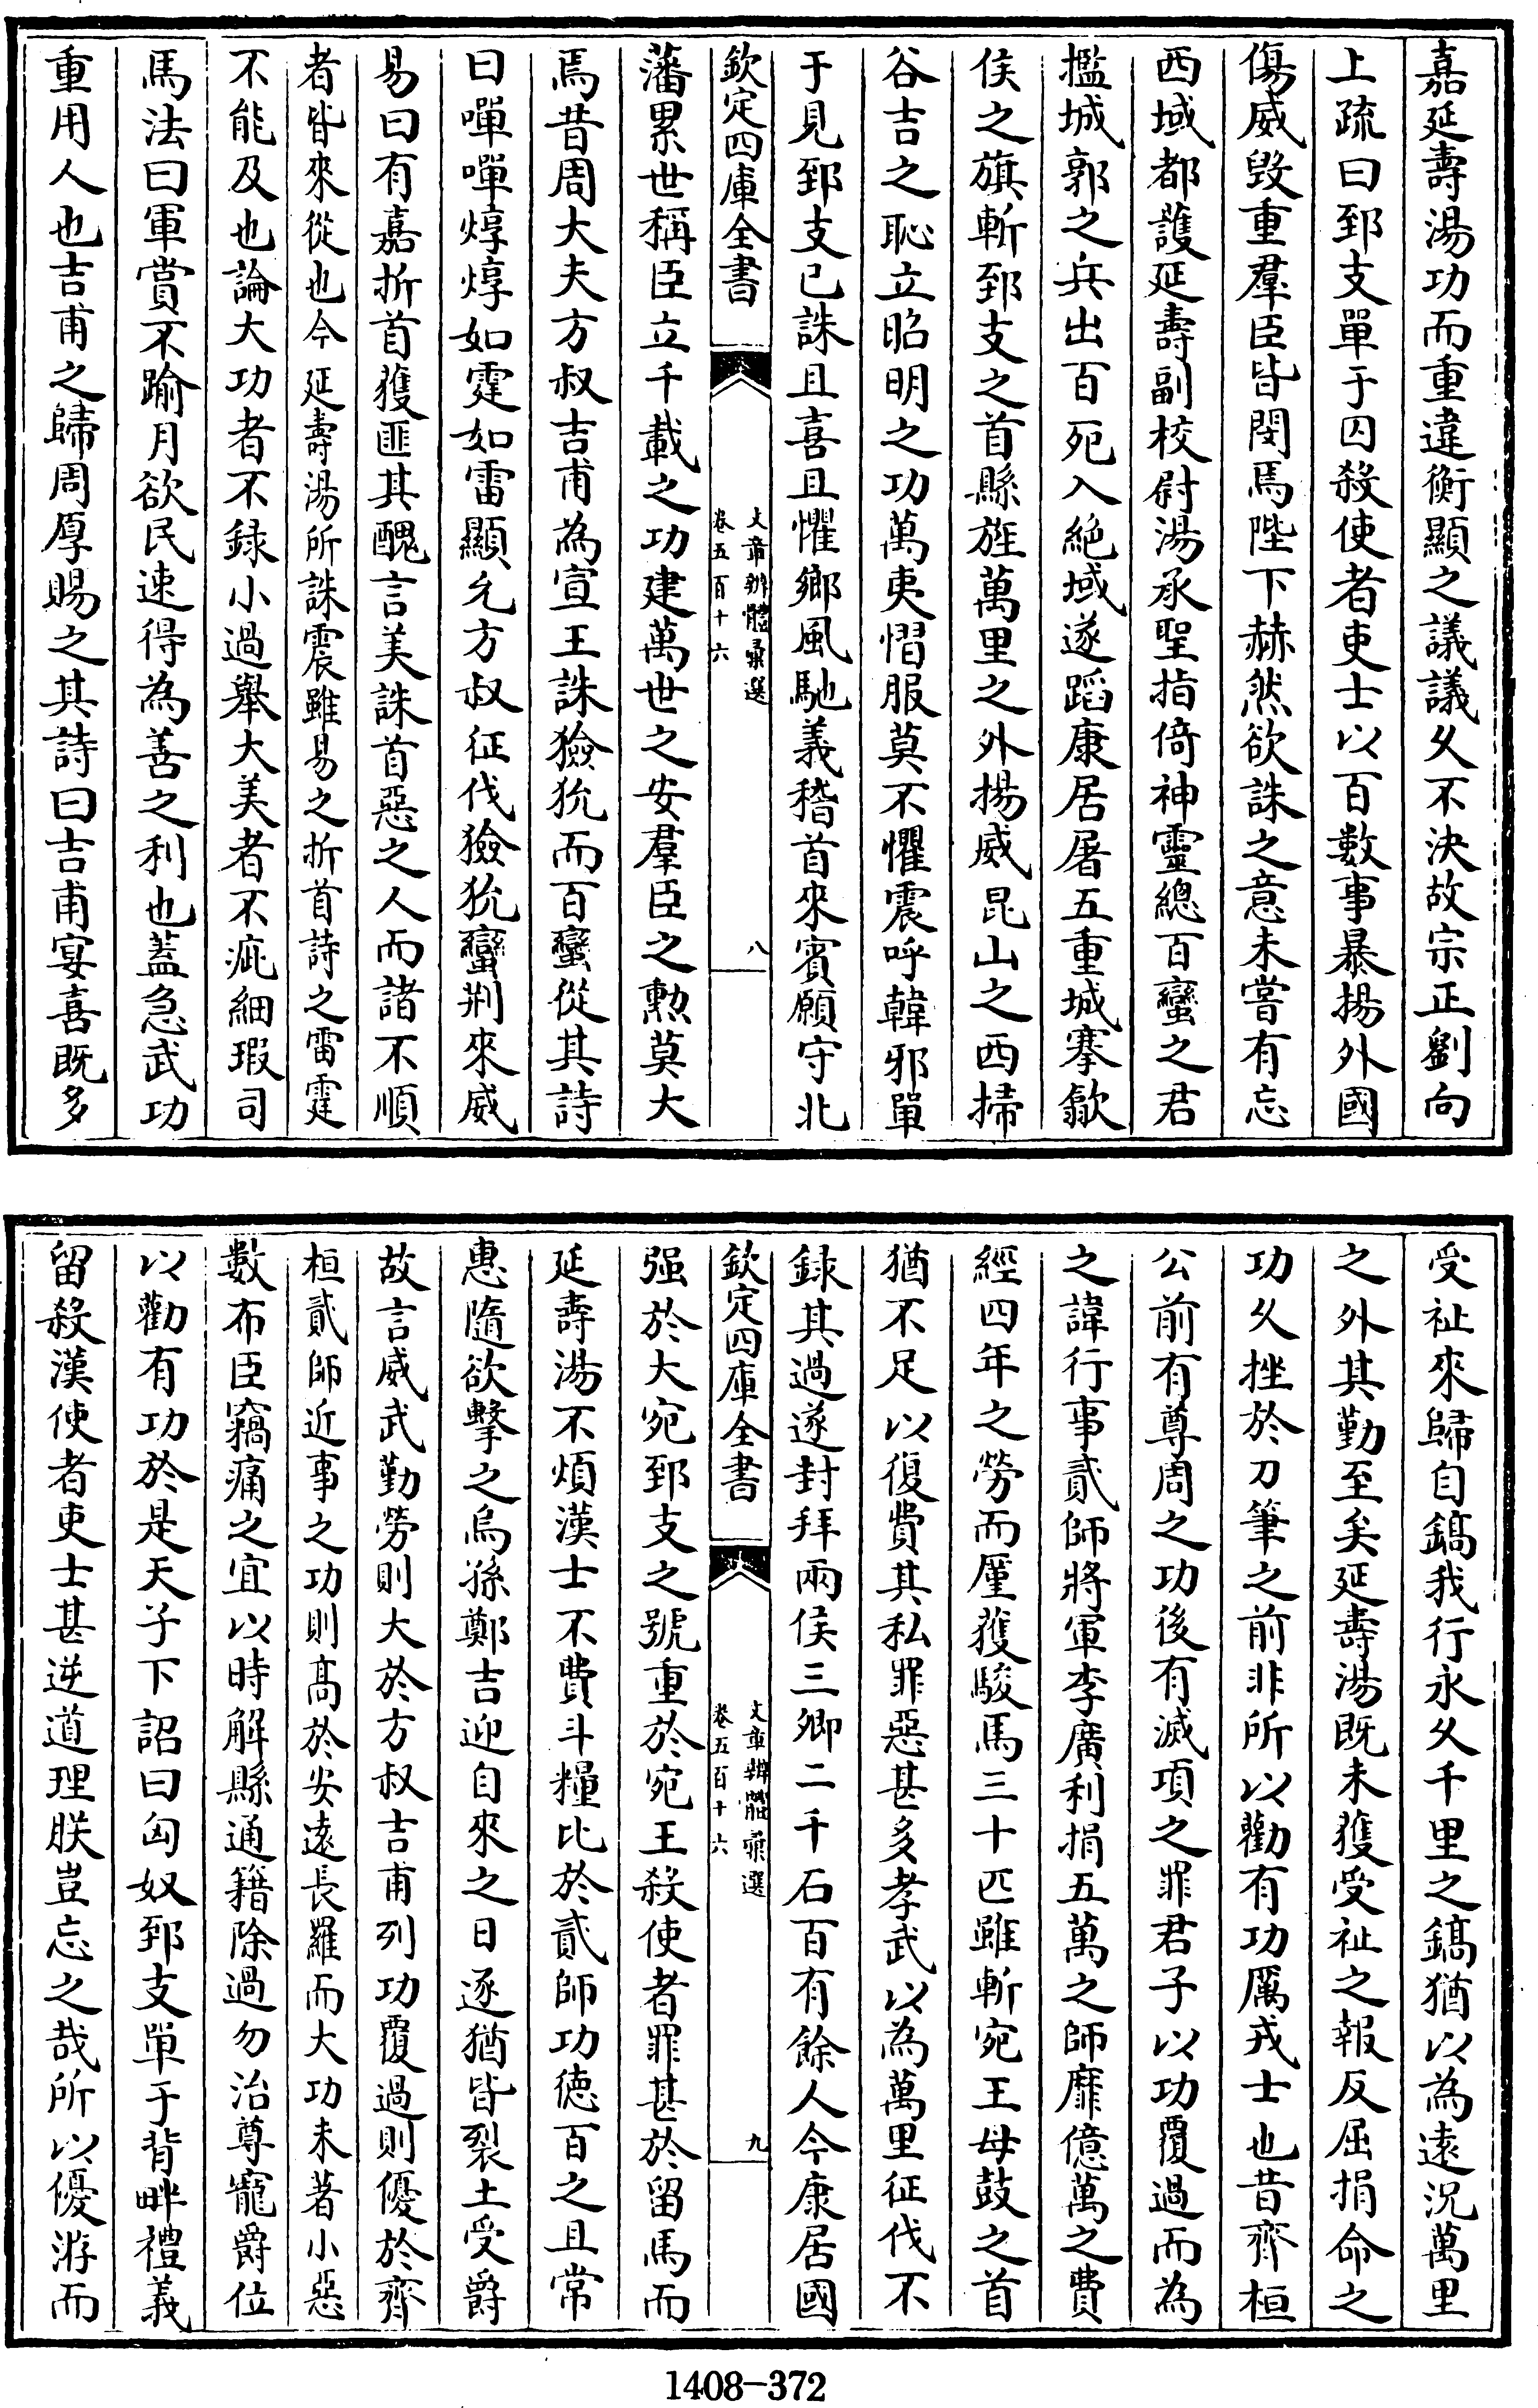 嘉延壽湯功而重違衡顯之議議乆不決故宗正劉向
上疏曰郅支單于囚殺使者吏士以百數事暴揚外國
傷威毁重羣臣皆閔焉陛下赫然欲誅之意未嘗有忘
西域都護延壽副校尉湯承聖指倚神靈總百蠻之君
㩜城郭之兵出百死入絶域遂蹈康居屠五重城搴歙
侯之旗斬郅支之首縣旌萬里之外揚威昆山之西掃
谷吉之恥立昭明之功萬夷慴服莫不懼震呼韓邪單
于見郅支已誅且喜且懼鄉風馳義稽首來賓願守北
欽定四庫全書
文章辨體彙選
卷五百十六
八
藩累世稱臣立千載之功建萬世之安羣臣之勲莫大
焉昔周大夫方叔吉甫為宣王誅獫狁而百蠻從其詩
曰嘽嘽焞焞如霆如雷顯允方叔征伐獫狁蠻荆來威
易曰有嘉折首獲匪其醜言美誅首惡之人而諸不順
者皆來從也今延壽湯所誅震雖易之折首詩之雷霆
不能及也論大功者不録小過舉大美者不疵細瑕司
馬法曰軍賞不踰月欲民速得為善之利也蓋急武功
重用人也吉甫之歸周厚賜之其詩曰吉甫宴喜既多
受祉來歸自鎬我行永乆千里之鎬猶以為逺況萬里
之外其勤至矣延壽湯既未獲受祉之報反屈捐命之
功乆挫於刀筆之前非所以勸有功厲戎士也昔齊桓
公前有尊周之功後有滅項之罪君子以功覆過而為
之諱行事貳師將軍李廣利捐五萬之師靡億萬之費
經四年之勞而厪獲駿馬三十匹雖斬宛王母鼓之首
猶不足以復費其私罪惡甚多孝武以為萬里征伐不
録其過遂封拜兩侯三卿二千石百有餘人今康居國
欽定四庫全書
文章辨體彙選
卷五百十六
九
强於大宛郅支之號重於宛王殺使者罪甚於留馬而
延壽湯不煩漢士不費斗糧比於貳師功德百之且常
惠隨欲擊之烏孫鄭吉迎自來之日逐猶皆裂土受爵
故言威武勤勞則大於方叔吉甫列功覆過則優於齊
桓貳師近事之功則髙於安逺長羅而大功未著小惡
數布臣竊痛之宜以時解縣通籍除過勿治尊寵爵位
以勸有功於是天子下詔曰匈奴郅支單于背畔禮義
留殺漢使者吏士甚逆道理朕豈忘之哉所以優游而
1408-372